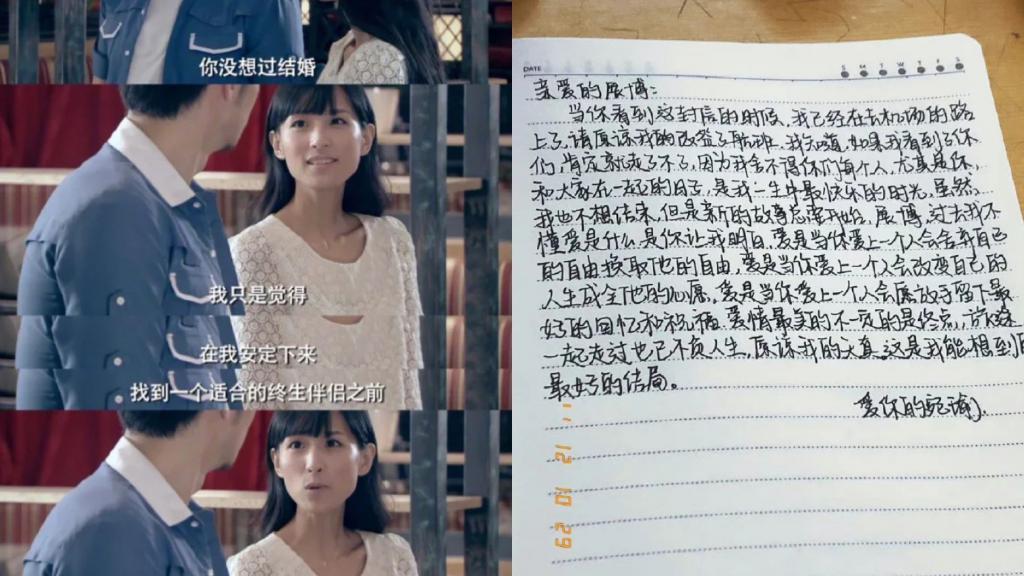 你没想过结婚
我只是觉得
在我安定下来
找到一个适合的终生伴侣之前
DATE
S M T W T F S
亲爱的展博：
当你看到这封信的时候，我已经在去机场的路
上了，请原谅我的改签了航班。我知道，如果我看到了你
们，肯定就走了不了，因为我舍不得你们每个人，尤其是你，
和大家在一起的日子，是我一生中最快乐的时光，虽然
我也不想结束，但是新的故事总要开始。展博，过去我不
懂爱是什么，是你让我明白，爱是当你爱上一个人会舍弃自己
的自由换取他的自由，爱是当你爱上一个人会改变自己的
人生成全他的心愿，爱是当你爱上一个人会愿放手留下最
好的回忆和祝福，爱情最美的不一定的是终点，旅途
一起走过也已不负人生，原谅我的天真，这是我能想到
最好的结局。
爱你的宛瑜
12 10 29